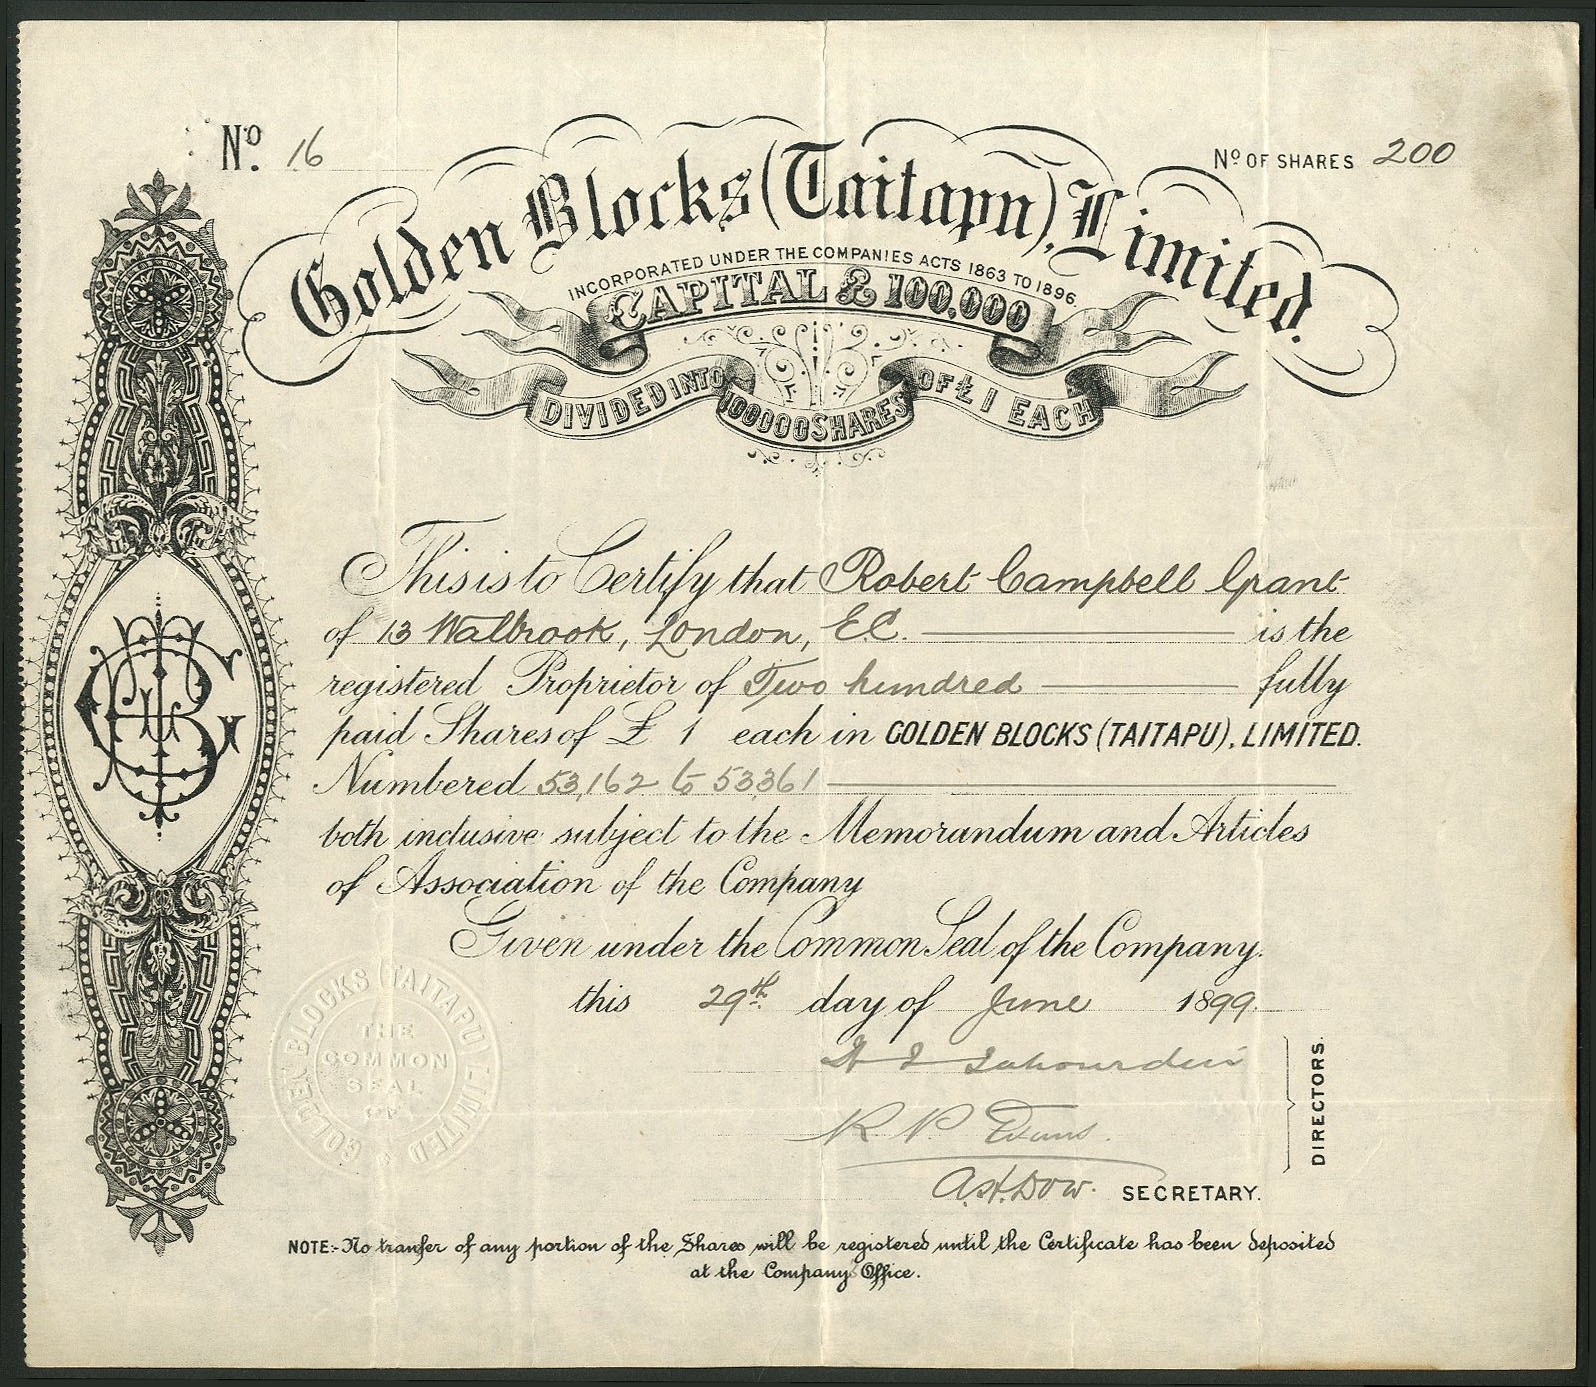 No. 16
No OF SHARES 200
Golden Blocks (Taitapu), Limited.
INCORPORATED UNDER THE COMPANIES ACTS 1863 TO 1896.
CAPITAL £100,000
DIVIDED INTO 100000 SHARES OF £1 EACH
This is to Certify that Robert Campbell Grant
of 13 Walbrook, London, E.C. is the
registered Proprietor of Two hundred fully
paid Shares of £ 1 each in GOLDEN BLOCKS (TAITAPU), LIMITED.
Numbered 53,162 to 53361
both inclusive subject to the Memorandum and Articles
of Association of the Company
Given under the Common Seal of the Company.
this 29th day of June 1899.
GOLDEN BLOCKS (TAITAPU) LIMITED
THE
COMMON
SEAL
OF
R P Evans.
DIRECTORS.
A.H. Dow. SECRETARY.
NOTE:- No transfer of any portion of the Shares will be registered until the Certificate has been deposited
at the Companys Office.